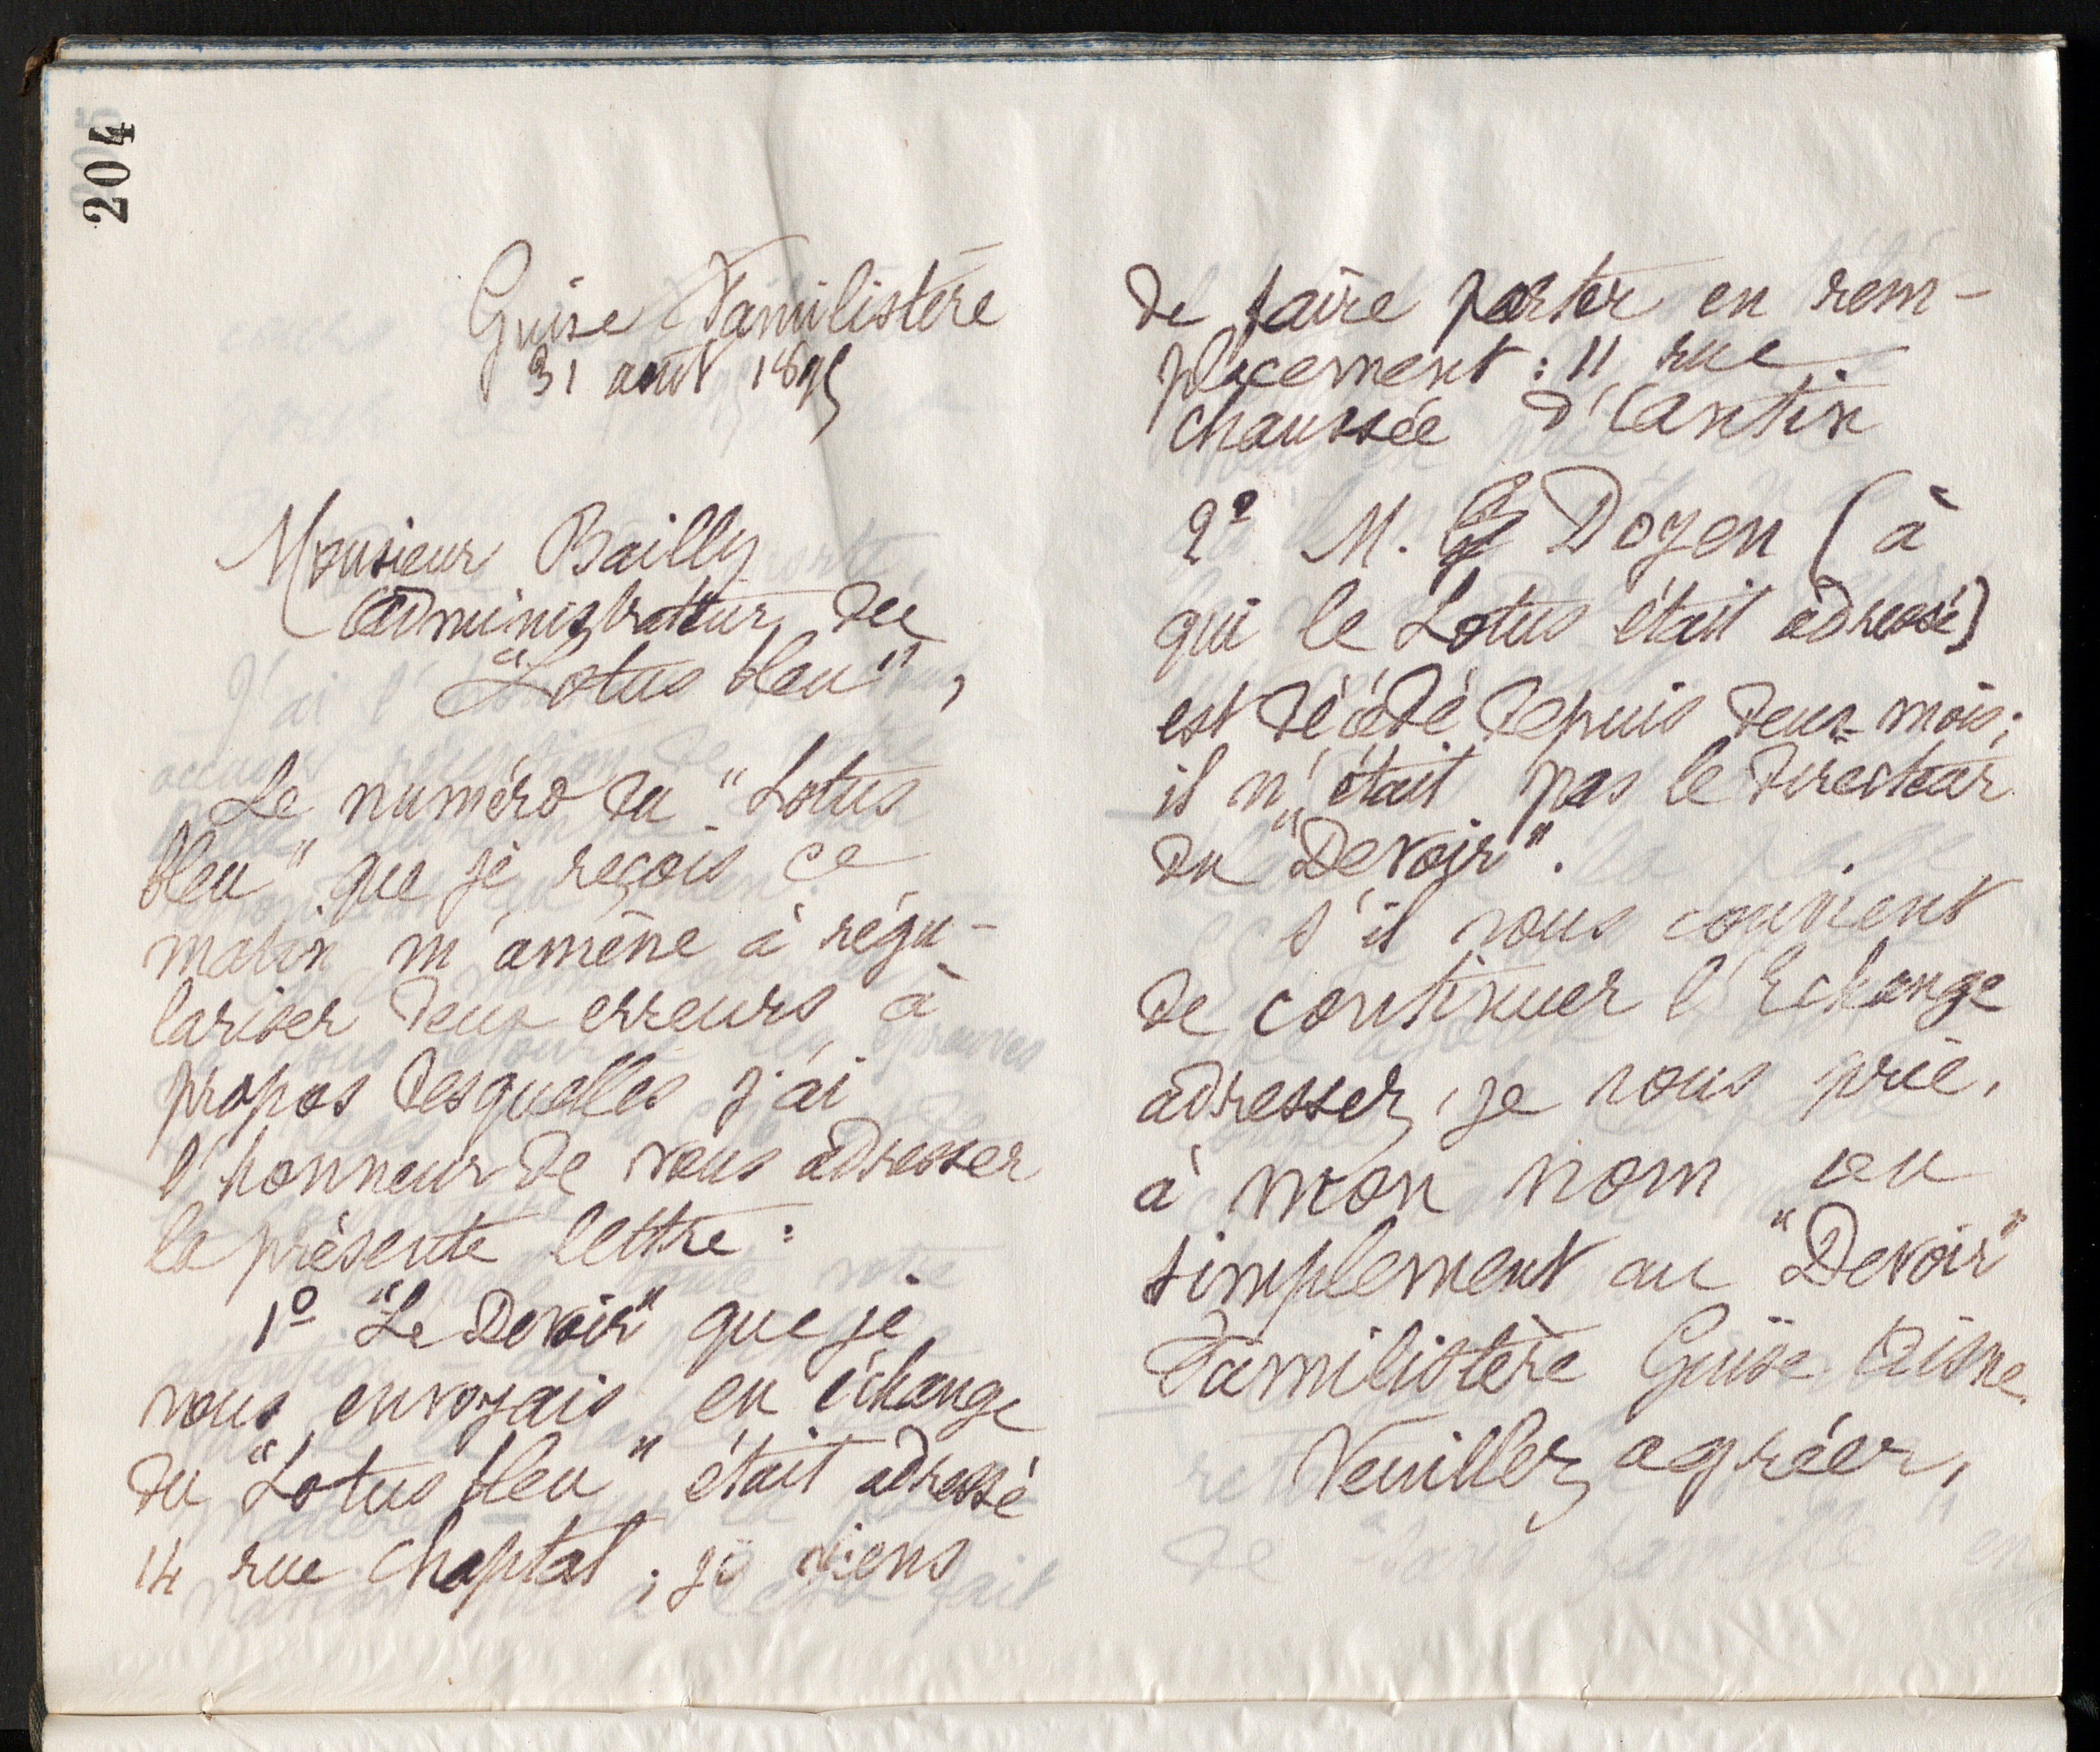 204
Guise Familistère
31 août 1895
Monsieur Bailly
administrateur du
"Lotus bleu",
Le numéro du "Lotus
bleu" que je reçois ce
matin m'amène à régu-
lariser deux erreurs à
propos desquelles j'ai
l'honneur de vous adresser
la présente lettre :
1º "Le Devoir" que je
vous envoyais en échange
du "Lotus bleu" était adressé
14 rue Chaptal ; je viens
de faire porter en rem-
placement : 11 rue
chaussée d'Antin
2º M. Doyen (à
qui le Lotus était adressé)
est décédé depuis deux mois ;
il n'était pas le directeur
du "Devoir".
S'il vous convient
de continuer l'échange
adresser, je vous prie,
à mon nom ou
simplement au "Devoir"
Familistère Guise Aisne.
Veuillez agréer,